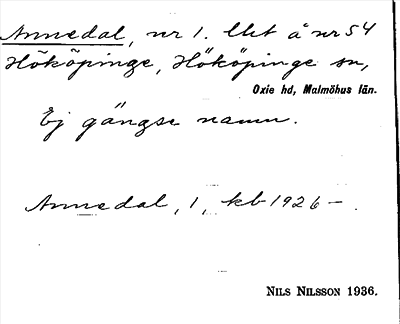 Annedal, nr 1. Lht å nr 54
Hököpinge, Hököpinge sn,
Oxie hd, Malmöhus län.
Ej gängse namn.
Annedal, 1, kb 1926 –.
NILS NILSSON 1936.